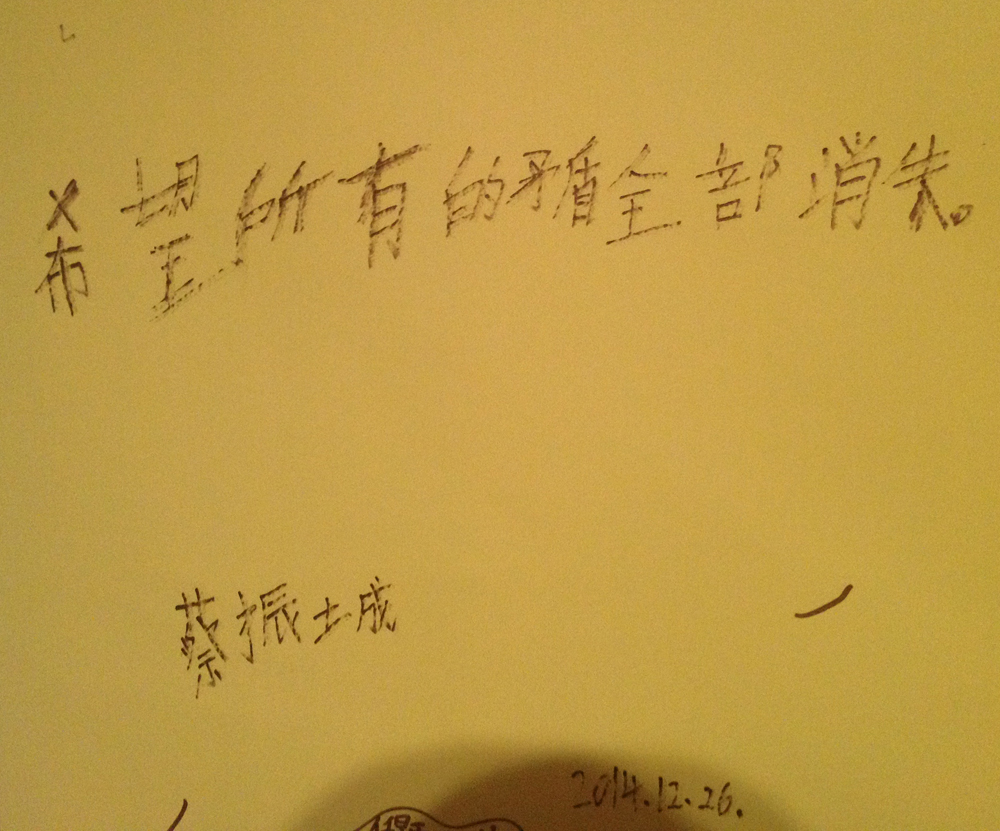 希望所有的矛盾全部消失。
蔡振城
2014.12.26.